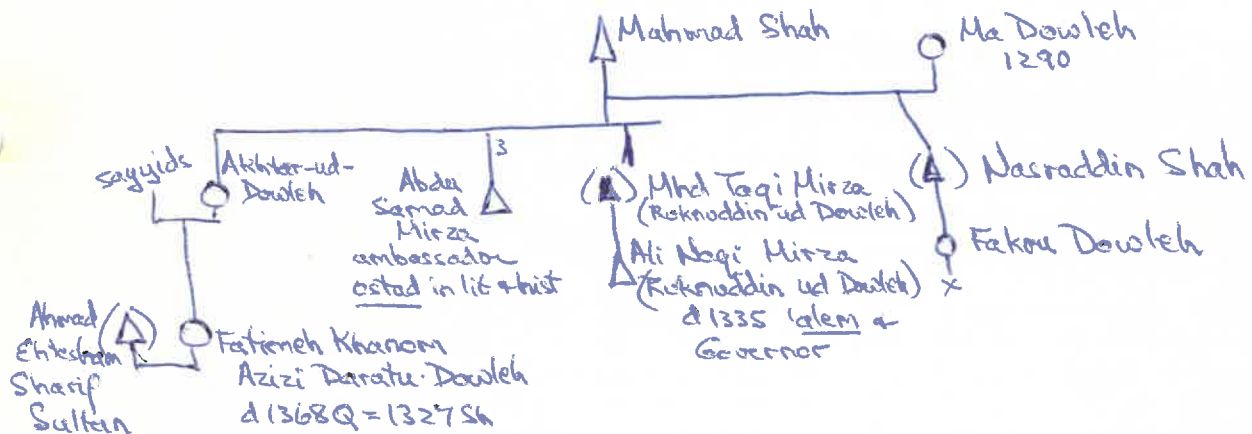 Mahmad Shah
Ma Dowleh
1290
sayyids
Akhter-ud-
Dowleh
3
Abdu
Samad
Mirza
ambassador
ostad in lit + hist
Mhd Taqi Mirza
(Roknuddin ud Dowleh)
Ali Naqi Mirza
(Roknuddin ud Dowleh)
d 1335 'alem +
Governor
Nasraddin Shah
Fakru Dowleh
x
Ahmad
Ehtesham
Sharif
Sultan
Fatimeh Khanom
Azizi Daratu-Dowleh
d 1368Q = 1327 Sh